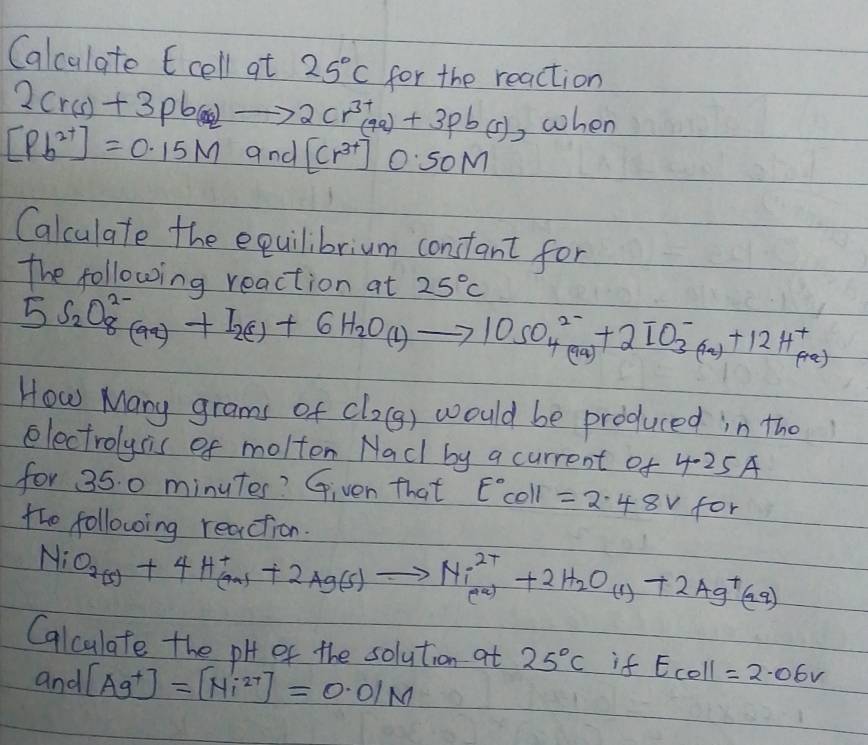 Calculate E cell at 25°C for the reaction
2Cr(s) + 3pb(aq) → 2Cr³⁺(aq) + 3pb(s), when
[Pb²⁺] = 0.15M and [Cr³⁺] 0.50M
Calculate the equilibrium constant for
the following reaction at 25°C
5 S₂O₈²⁻(aq) + I₂(s) + 6H₂O(l) → 10SO₄²⁻(aq) + 2IO₃⁻(aq) + 12H⁺(aq)
How Many grams of Cl₂(g) would be produced in the
electrolysis of molten Nacl by a current of 4.25A
for 35.0 minutes? Given that E°cell = 2.48V for
the following reaction.
NiO₂(s) + 4H⁺(aq) + 2Ag(s) → Ni²⁺(aq) + 2H₂O(l) + 2Ag⁺(aq)
Calculate the pH of the solution at 25°C if Ecell = 2.06v
and [Ag⁺] = [Ni²⁺] = 0.01M